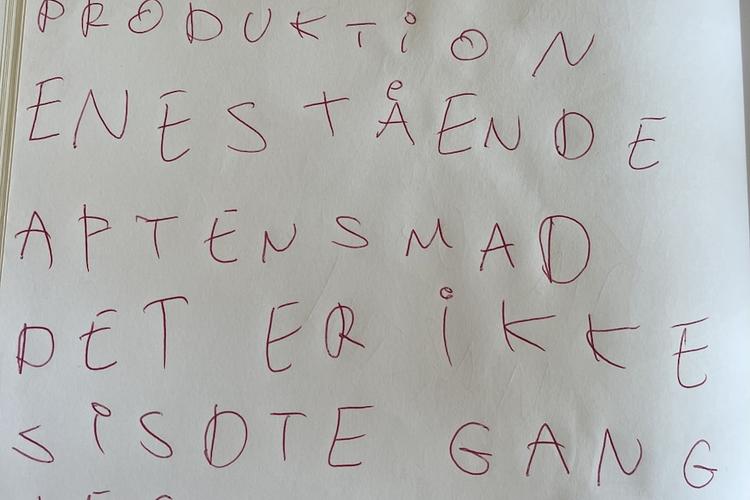 PRODUKTiON
ENESTÅENDE
APTENSMAD
DET ER iKKE
SiSDTE GANG